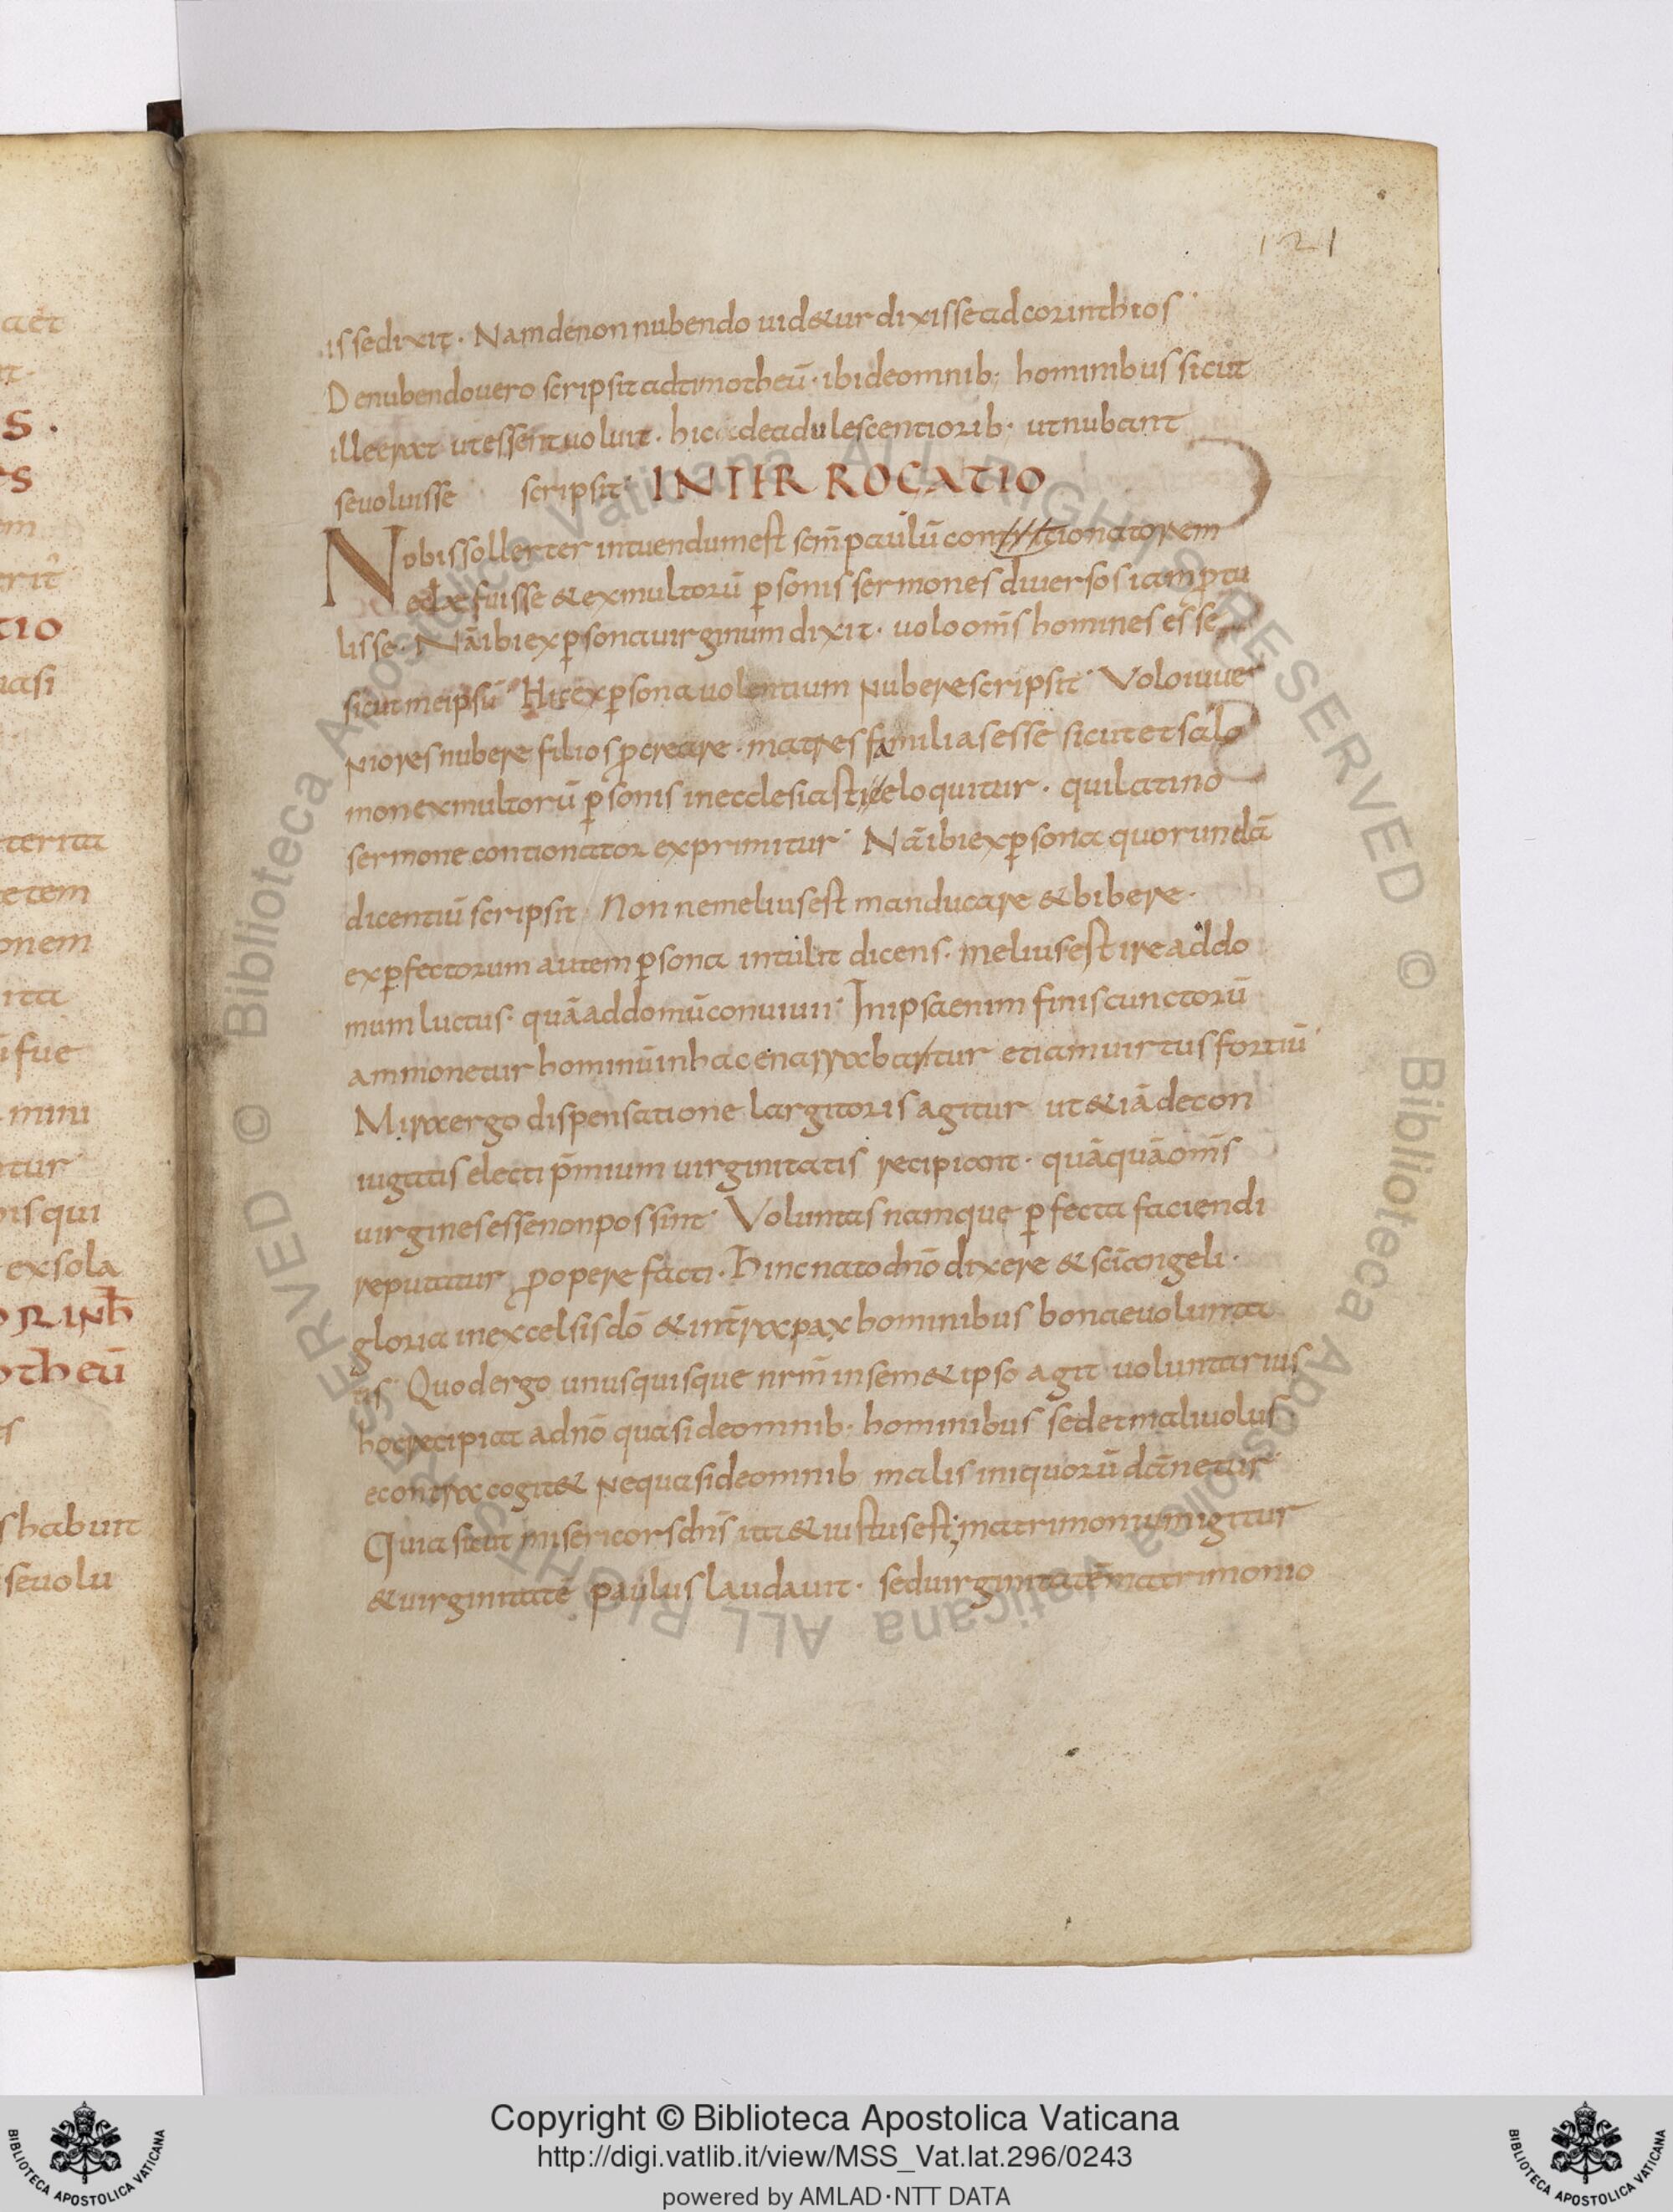 121
issedixit · Namdenonnubendo uid&urdixisseadcorinthios
Denubendouero scripsitadtimotheū · ibideomnib; hominibus sicut
illeerat utessentuoluit · hicdeadulescentiorib; utnubant
seuoluisse scripsit INTERROGATIO
Nobissollerter intuendumest scm̄ paulū contionatorem
fuisse &exmultorū ꝑsonis sermones diuersos
lisse · Nāibiexꝑsonauirginum dixit · uolo om̄s homines esse
sicut meipsū Hicexꝑsonauolentium nuberescripsit Voloiuue
niores nubere filios ꝓcreare · matres familiasesse sicutetsalo
monexmultorū ꝑsonis inecclesiaste eloquitur · quilatino
sermone contionator exprimitur Nāibiexꝑsona quorundā
dicentiū scripsit Nonnemeliusest manducare &bibere ·
exꝑfectorum autem ꝑsona intulit dicens · meliusest ireaddo
mum luctus · quāaddomūconuiuii Inipsaenim finiscunctorū
ammonetur hominū inhac enarratur etiamuirtusfortiū
Miraergo dispensatione largitoris agitur ut&iā decon
iugatis electi p̄mium uirginitatis recipiant · quāquāom̄s
uirginesessenonpossint Voluntas namque ꝑfecta faciendi
reputatur ꝓopere facti · Hincnatodn̄o dixere &scīangeli ·
gloria inexcelsisdō &interrapax hominibus bonaeuolunta
tis Quodergo unusquisque nrm̄ insem&ipso agit uoluntarius
hocrecipiat adn̄o quasideomnib; hominibus sedetmaliuolus
econtra cogit& nequasideomnib malis iniquorū dānetur
Quia sicut misericorsdn̄s ita&iustusest; matrimoniumigitur
&uirginitatē paulus laudauit · seduirginitatēmatrimonio
aet
S ·
S
em
tio
uasi
terita
etem
onem
ita
fue
mini
tur
isqui
exsola
ORINh̄
otheū
shabuit
seuolu
© Biblioteca Apostolica Vaticana ALL RIGHTS RESERVED © Biblioteca Apostolica Vaticana ALL RIGHTS RESERVED
BIBLIOTECA APOSTOLICA VATICANA
Copyright © Biblioteca Apostolica Vaticana
http://digi.vatlib.it/view/MSS_Vat.lat.296/0243
powered by AMLAD·NTT DATA
BIBLIOTECA APOSTOLICA VATICANA